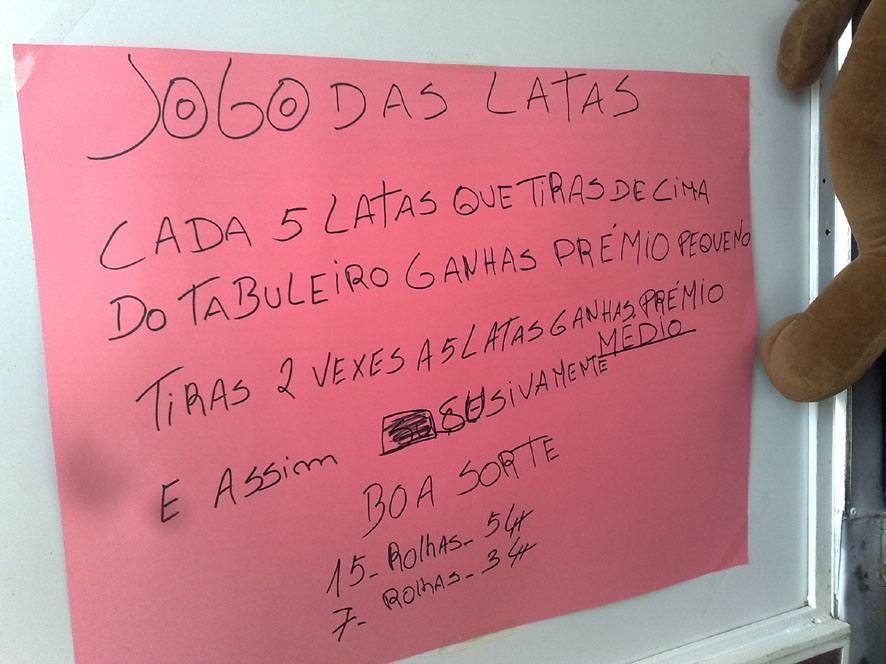 JOGO DAS LATAS
CADA 5 LATAS QUE TIRAS DE CIMA
DO TABULEIRO GANHAS PRÉMIO PEQUENO
TIRAS 2 VEXES A 5 LATAS GANHAS PRÉMIO
MÉDIO
E ASSIM SUSIVAMENTE
BOA SORTE
15- ROLHAS- 5
7- ROLHAS- 3